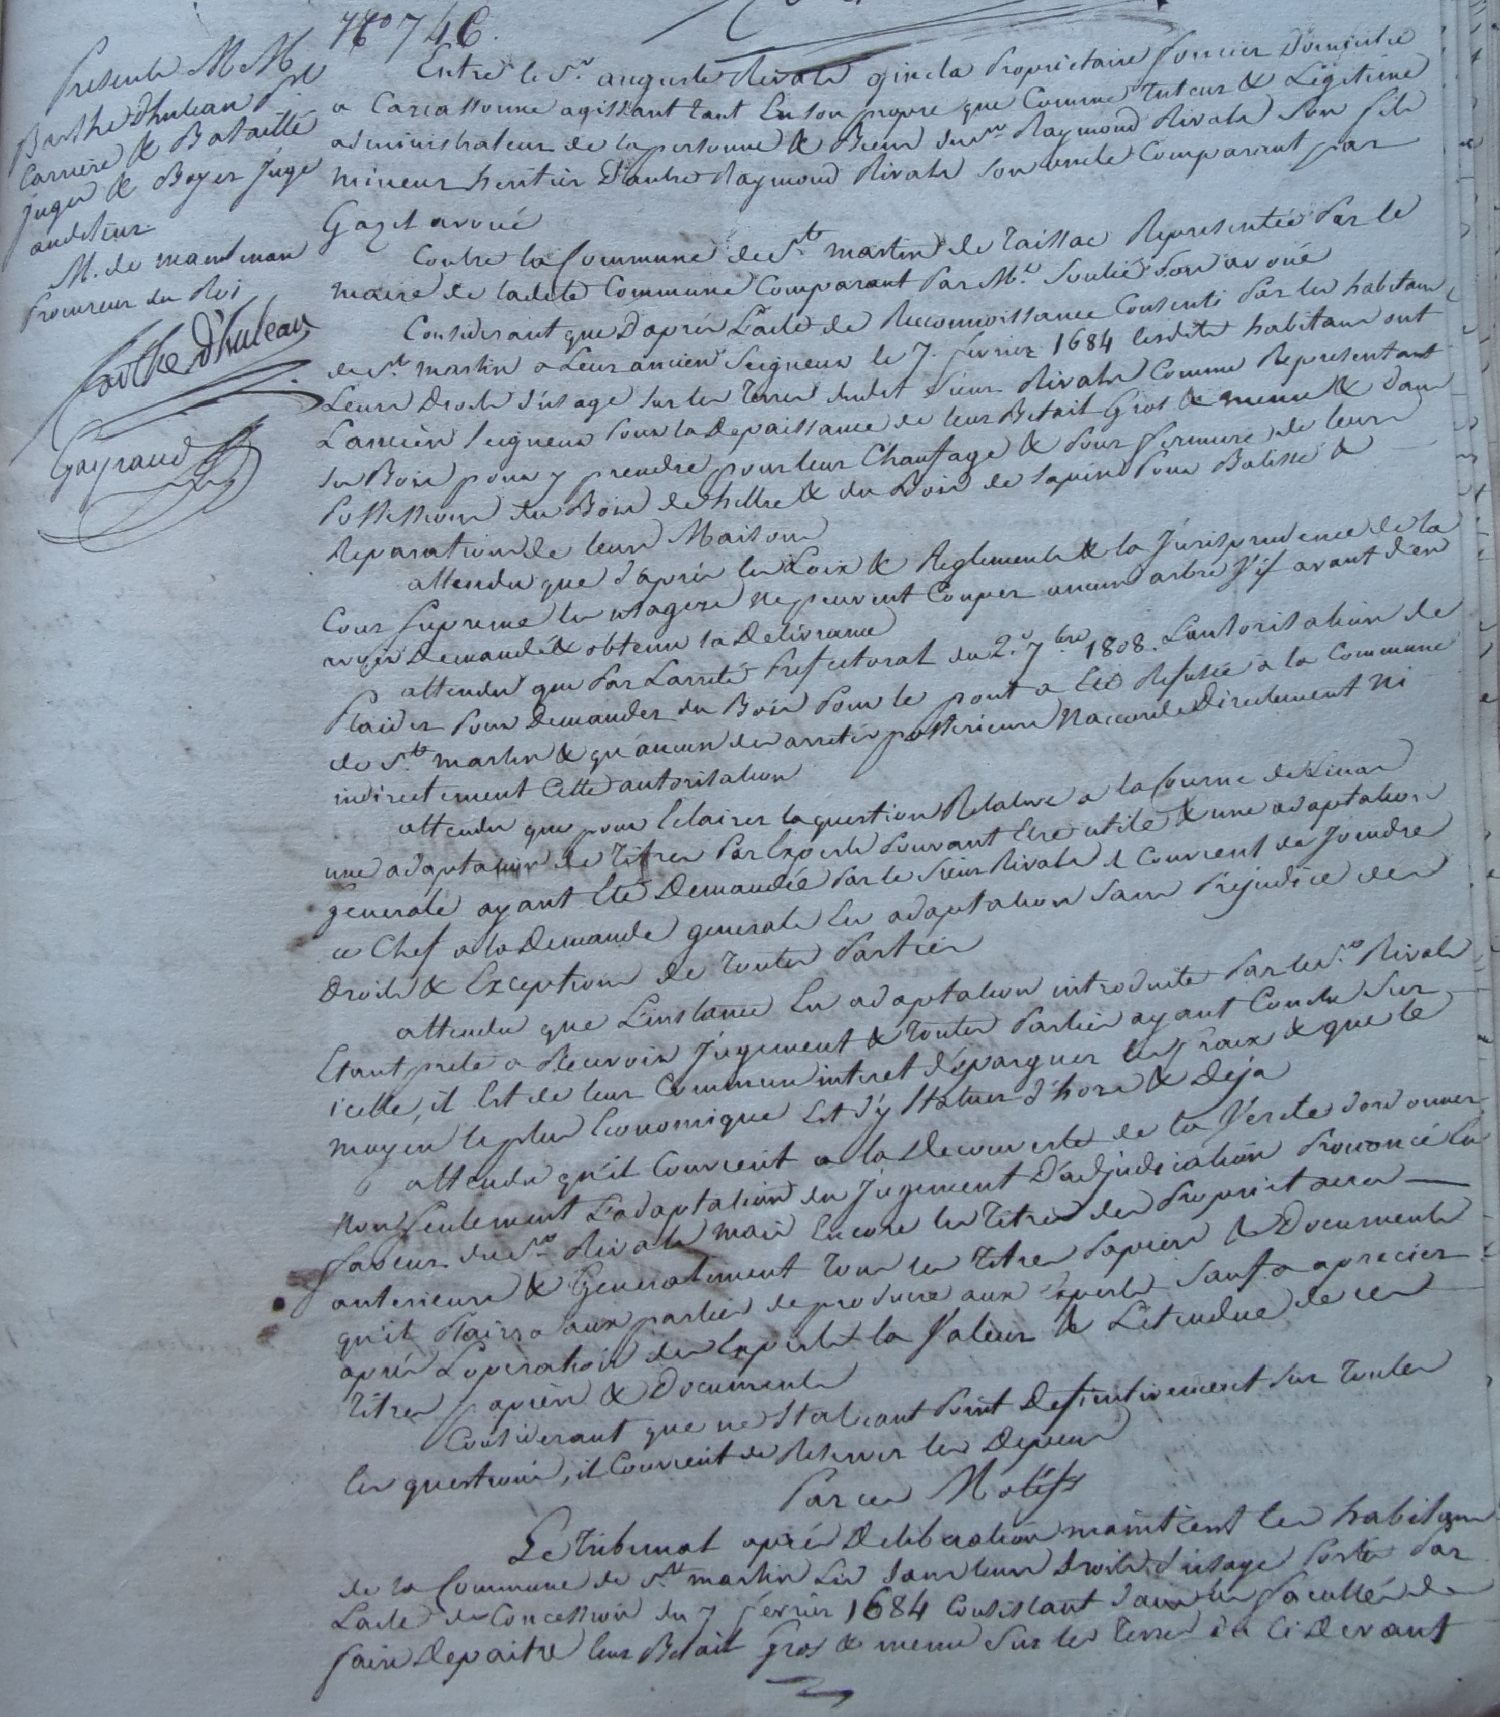 Presents M M
Barthe Dhulean Pt
Carriere & Bataille
juges & Boyer juge
auditeur
M. de
Procureur du Roi
Barthe d'huleau
Gayraud
No 746.
Entre le Sr auguste Rivals gincla Proprietaire foncier Domicilié
a Carcassonne agissant tant En son propre que Comme Tuteur & Légitime
administrateur de la personne & Biens du Sr Raymond Rivals son fils
mineur heritier D'autre Raymond Rivals son oncle Comparant par
Gazel avoué
Contre la Commune de St martin de taissac Representée Par le
maire de ladite Commune Comparant Par Me Soulié Son avoué
Considerant que D'après L'acte de Reconnoissance Consenti Par les habitans
de St martin a Leur ancien Seigneur le 7. fevrier 1684 lesdits habitans ont
Leurs Droits d'usage Sur les Terres dudit Sieur Rivals Comme Representant
L'ancien Seigneur Pour la Depaissance de leur Betail Gros & menu & dans
les Bois pour y prendre pour leur Chaufage & Pour fermure de leurs
Possessions du Bois de hettre & du Bois de Sapin Pour Batisse &
Reparation de leurs Maisons
attendu que d'après les Loix & Reglements & la Jurisprudence de la
Cour Supreme les usagers ne peuvent Couper aucun arbre s'if avant d'en
avoir Demandé & obtenu la Delivrance
attendu que Par L'arreté Prefectoral du 2. 7bre 1808. L'autorisation de
Plaider Pour Demander du Bois Pour le pont a Eté Refusée à la Commune
de St martin & qu'aucun des arretés posterieurs N'accorde Directement Ni
indirectement Cette autorisation
attendu que pour Eclairer la question Relative a la
une adaptation de Titres Par Experts Pouvant Etre utile & une adaptation
generale ayant Eté Demandée Par le Sieur Rivals il Convient de Joindre
ce Chef a la Demande generale En adaptation Sans Prejudice des
Droits & Exceptions de toutes Parties
attendu que L'instance En adaptation introduite Par le Sr Rivals
Etant prete a Recevoir Jugement & toutes Parties ayant Conclu Sur
icelle, il Est de leur Commun interet d'épargner les fraix & que le
moyen le plus Economique Est d'y Statuer d'hors & Déja
attendu qu'il Convient a la Decouverte de la Verité d'ordonner
Non Seulement L'adaptation du Jugement D'adjudication Prononcé En
faveur du Sr Rivals mais Encore les Titres des Proprietaires
anterieurs & Generalement Tous les Titres Papiers & Documents
qu'il Plaira aux parties de produire aux Experts Sauf a aprecier
après L'operation des Experts la Valeur & L'etendue de ces
Titres papiers & Documents
Considerant que ne Statuant Point Definitivement Sur Toutes
les questions, il Convient de Reserver les Depens
Par ces Motifs
Le Tribunal après Deliberation maintient les habitans
de la Commune de St martin Lis dans leurs Droits d'usage Portés Par
L'acte de Concession du 7 fevrier 1684 Consistant dans la faculté de
faire Depaitre leur Betail Gros & menu Sur les Terres du Ci Devant